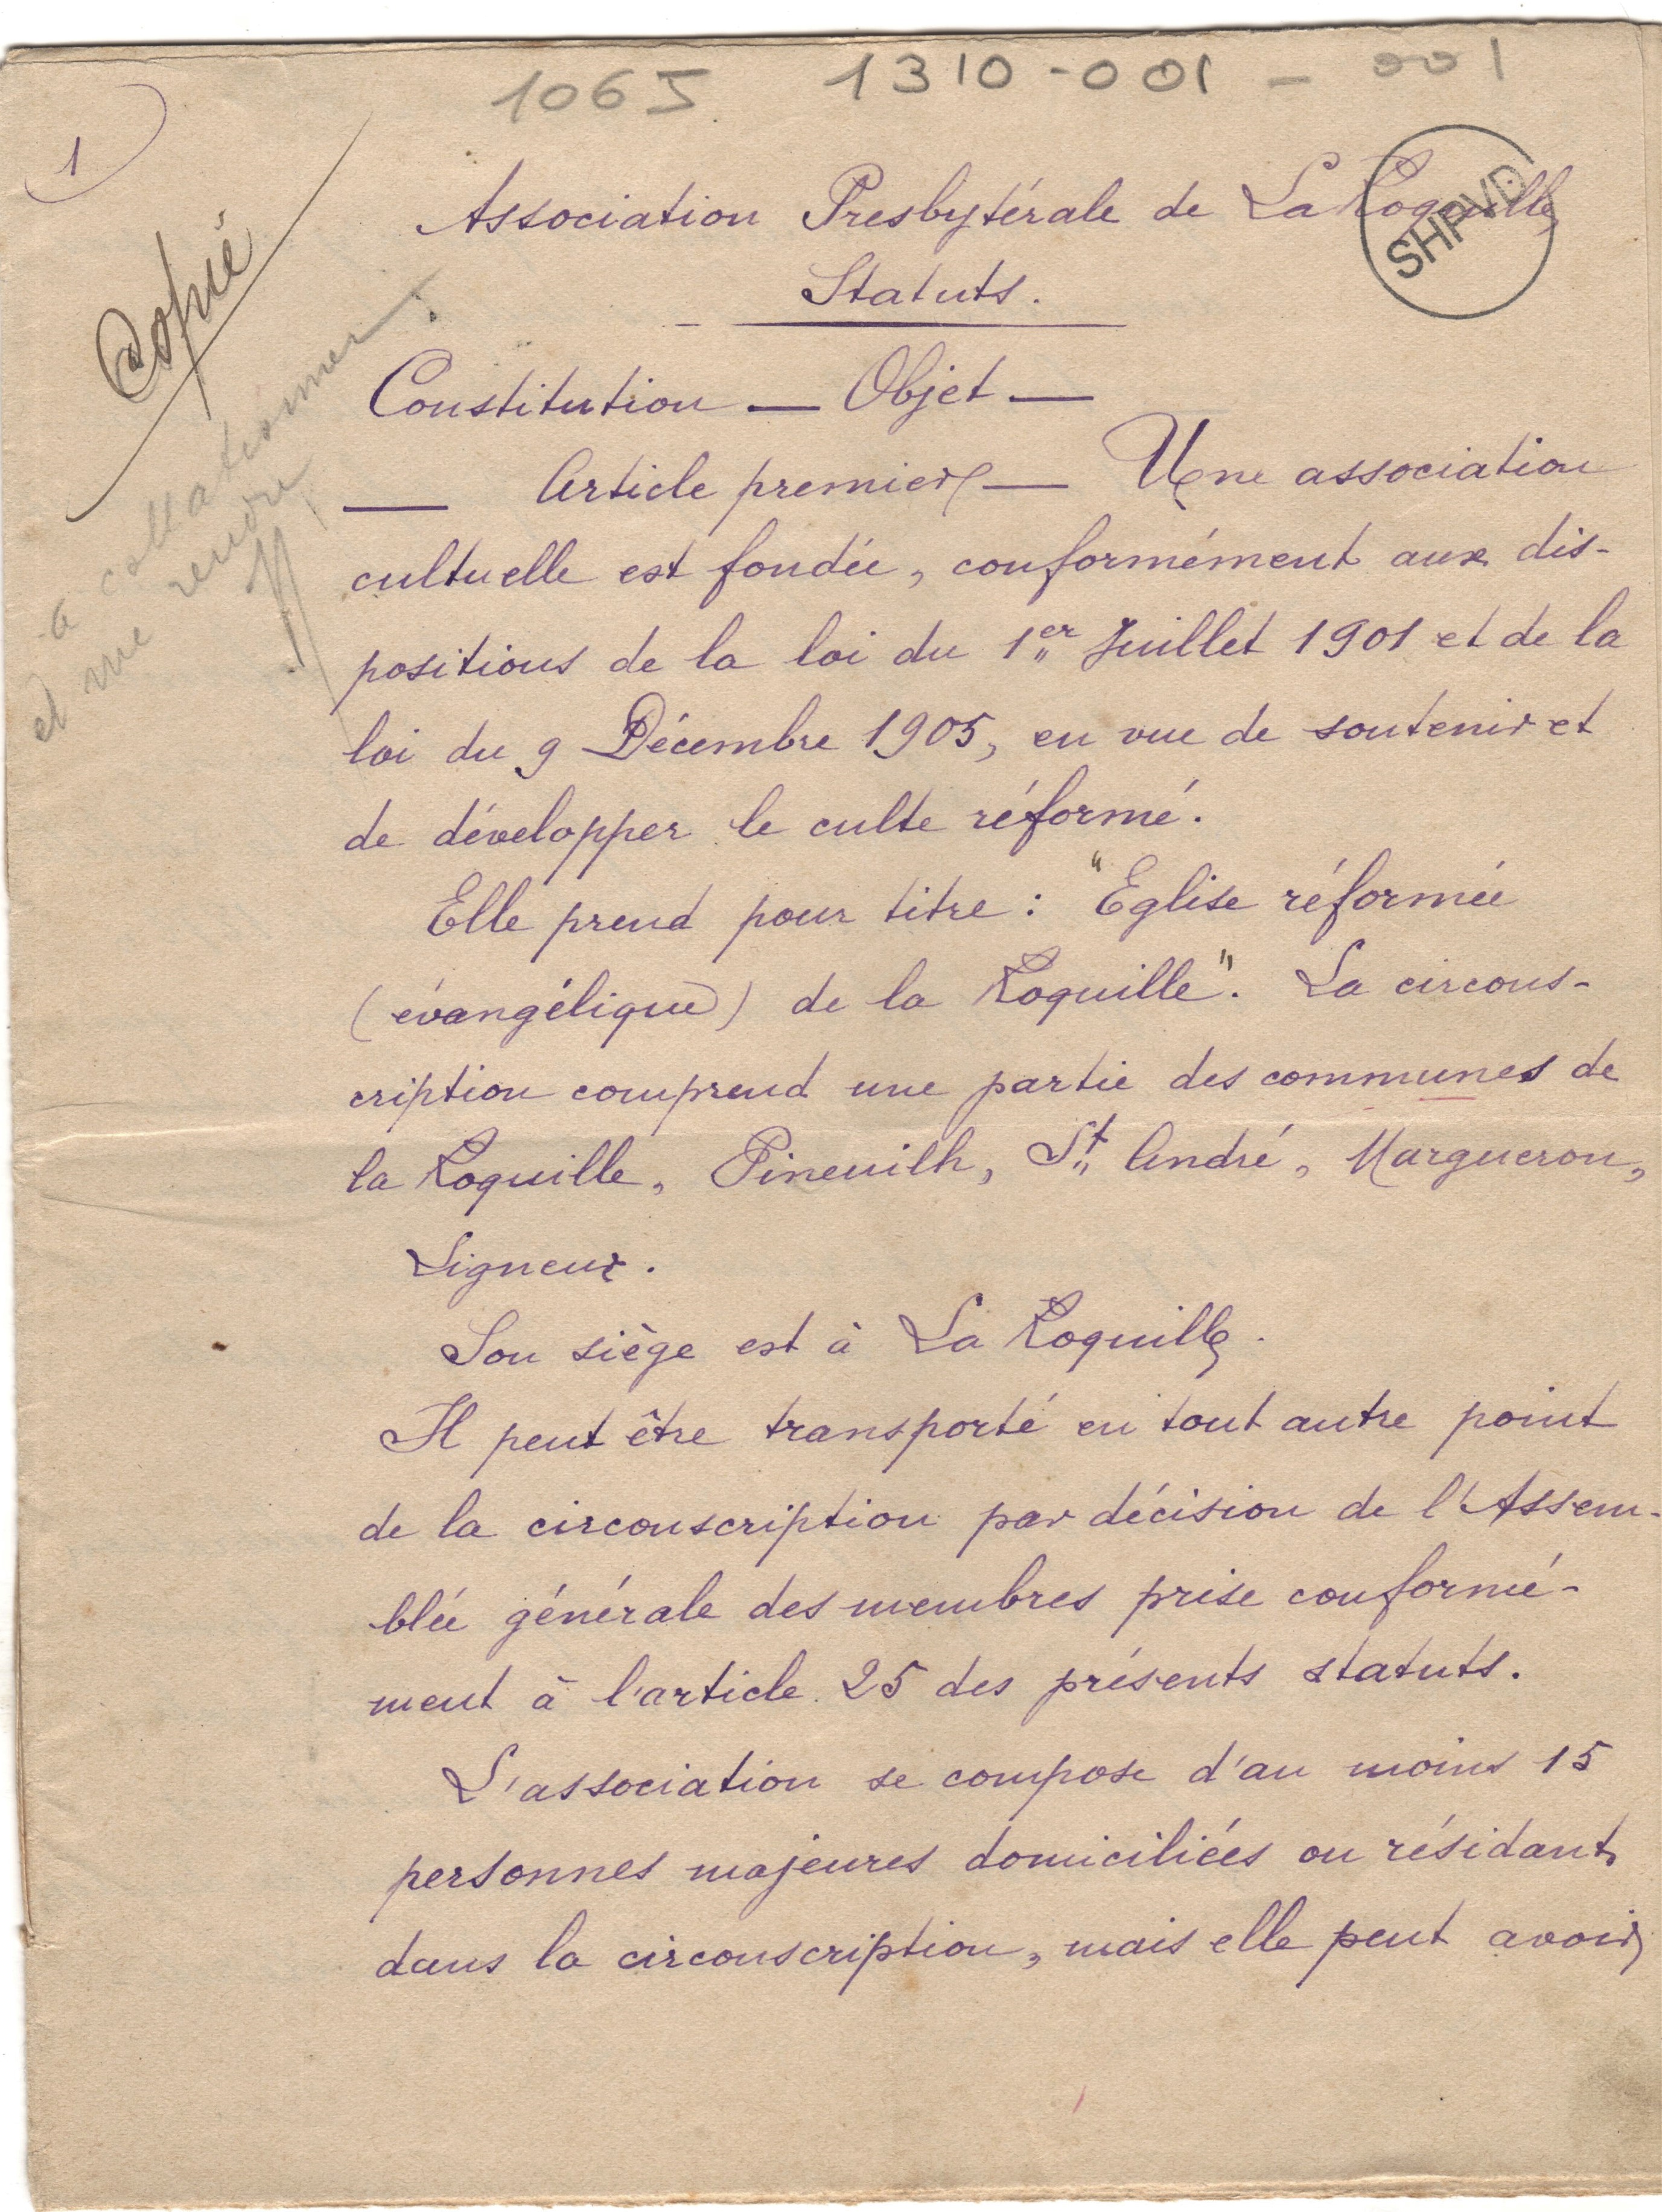 1065 1310-001 - 001
1
Copié
à collationner
et me rendre
SHPVD
Association Presbytérale de La Roquille
Statuts.
Constitution — Objet —
— Article premier — Une association
cultuelle est fondée, conformément aux dis-
positions de la loi du 1er Juillet 1901 et de la
loi du 9 Décembre 1905, en vue de soutenir et
de développer le culte réformé.
Elle prend pour titre : "Eglise réformée
(évangélique) de la Roquille". La circons-
cription comprend une partie des communes de
la Roquille, Pineuilh, St André, Margueron,
Ligueux.
Son siège est à La Roquille.
Il peut être transporté en tout autre point
de la circonscription par décision de l'Assem-
blée générale des membres prise conformé-
ment à l'article 25 des présents statuts.
L'association se compose d'au moins 15
personnes majeures domiciliées ou résidant
dans la circonscription, mais elle peut avoir